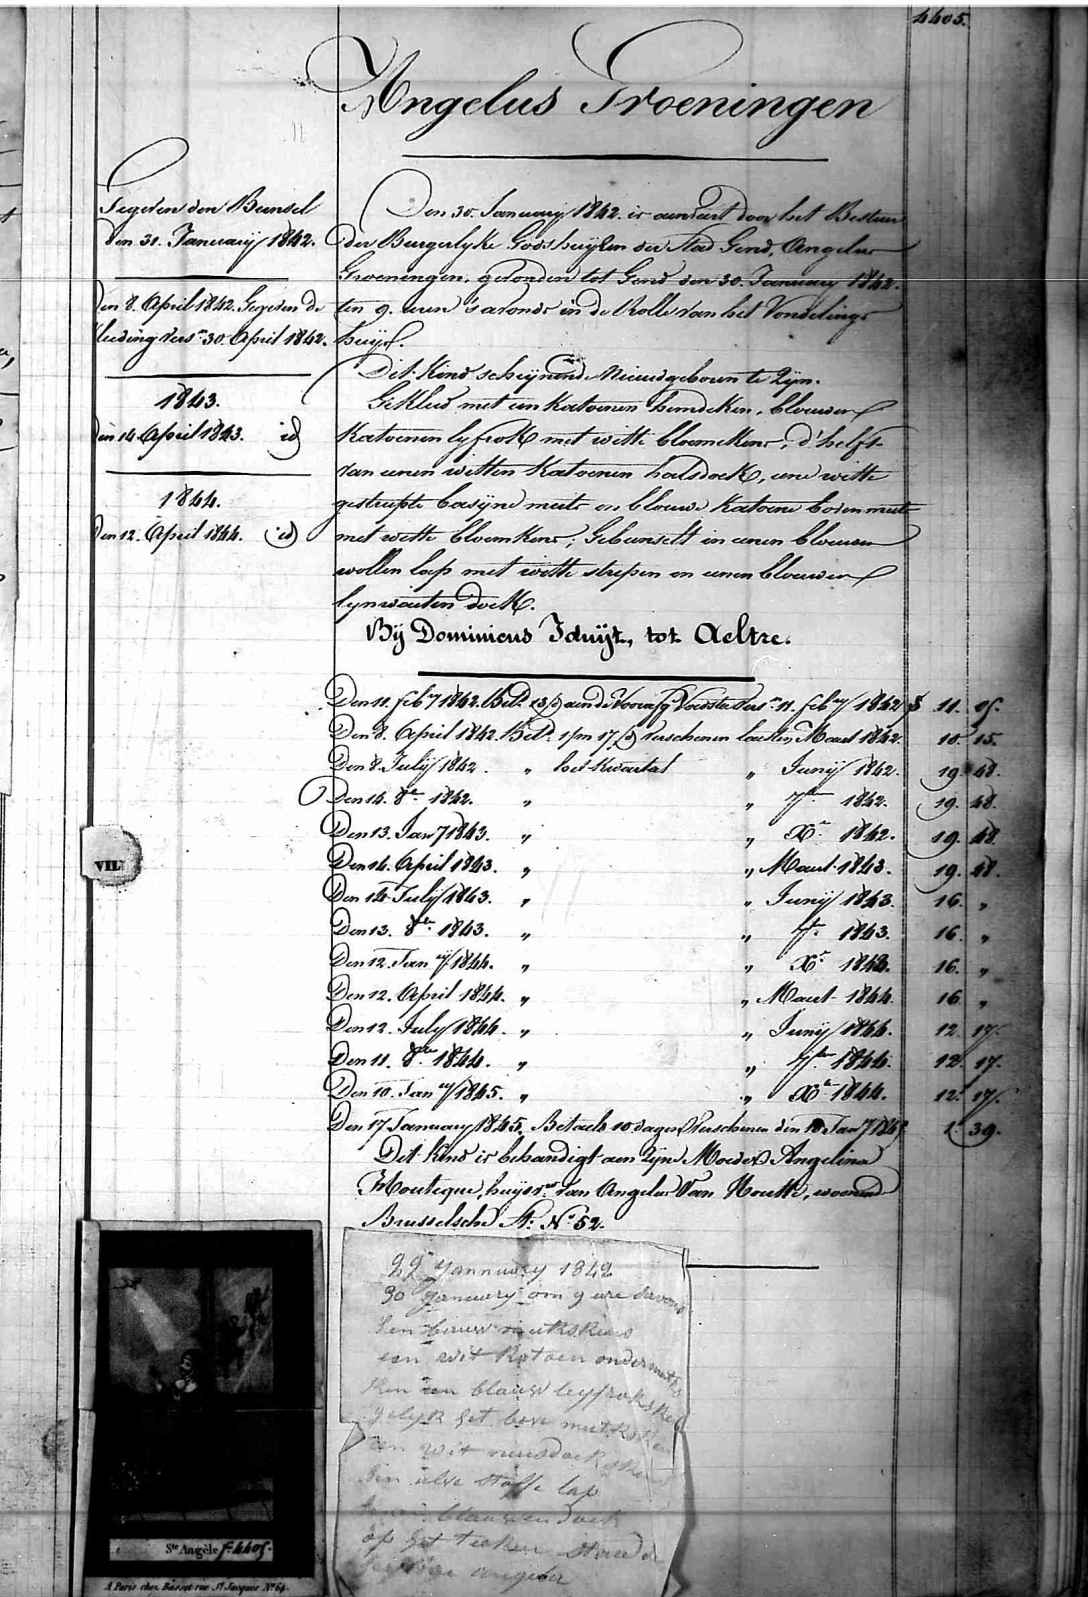 4405.
Angelus Groeningen
Gegeven den Bunsel
den 31. January 1842.
den 8. April 1842. Gegeven de
kleeding vers.n 30. April 1842.
1843.
den 14 April 1843. id
1844.
den 12. April 1844. id
Den 30. January 1842. is aenvaert door het Bestuer
der Burgerlyke Godshuyzen der Stad Gend, Angelus
Groeningen, gevonden tot Gend den 30. January 1842.
ten 9. uren 's avonds in de Rolle van het Vondelings
huys.
Dit Kind scheynend Nieuwgeboren te Zyn.
Gekleed met een Katoenen hemdeken, blouwen
Katoenen lyfrok met witte bloemekens, d'helft
van eenen witten Katoenen halsdoek, eene witte
gestreepte basyne muts en blouwe Katoene boven muts
met witte bloemkens; Gebunselt in eenen blouwen
wollen lap met witte strepen en eenen blouwen
lynwaeten doek.
By Dominicus Iduijt, tot Aeltre.
Den 11. feb.ry 1842. Bet. aen de Voorafg. Voedster vers.n 11. feb.ry 1842 f 11. 05.
Den 8. April 1842. Bet. 1/m 17 verschenen laesten Maert 1842. 10. 15.
Den 8. July 1842. " het Kwartal " Juny 1842. 19. 48.
Den 14. 8.re 1842. " " 7.re 1842. 19. 48.
Den 13. Jan.ry 1843. " " X.re 1842. 19. 48.
Den 14. April 1843. " " Maert 1843. 19. 48.
Den 14 July 1843. " " Juny 1843. 16. "
Den 13. 8.bre 1843. " " 7.re 1843. 16. "
Den 12. Jan.ry 1844. " " X.re 1843. 16. "
Den 12. April 1844. " " Maert 1844. 16. "
Den 12. July 1844. " " Juny 1844. 12. 17.
Den 11. 8.bre 1844. " " 7.bre 1844. 12. 17.
Den 10. Jan.ry 1845. " " X.re 1844. 12. 17.
Den 17 January 1845. Betaelt 10 dagen verschenen den 10 Jan.ry 1845 1. 39.
Dit kind is behandigt aen Zyne Moeder Angelina
Houteque, huysv.w van Angelus Van Houtte, woonende
Brusselsche St: N.o 52.
VII.
29 Jannuary 1842
30 January om 9 ure savons
een wit katoen ondermuts
ken een blauw leyfrokske
gelyk het bove mutksken
een wit neusdoekske
een alve stoffe lap
blauwen doek
op het teeken staende
angela
Ste Angèle f.o 4405.
A Paris chez Basset rue St Jacques N.o 64.